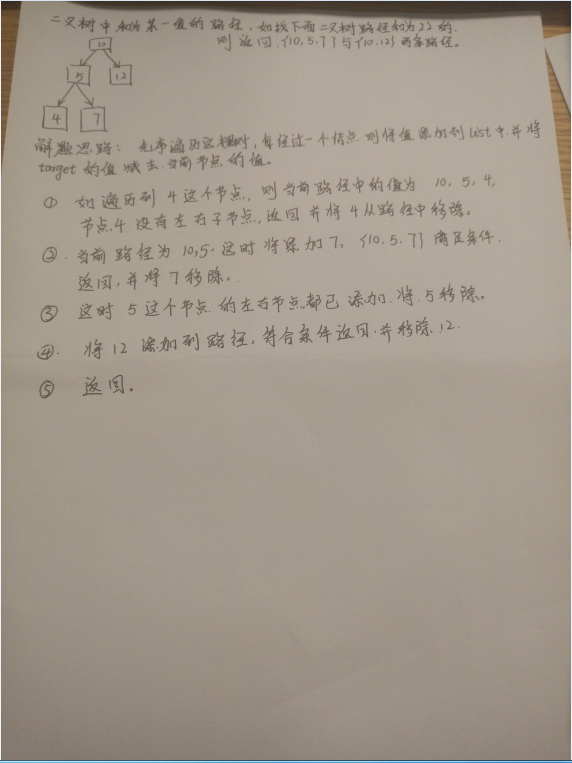 二叉树中和为某一值的路径，如找下面二叉树路径和为22的，
则返回{10,5,7}与{10,12}两条路径。
10
5 12
4 7
解题思路：先序遍历这棵树，每经过一个结点则将值添加到List中，并将
target的值减去当前节点的值。
① 如遍历到4这个节点，则当前路径中的值为 10，5，4，
节点4没有左右子节点，返回并将4从路径中移除。
②. 当前路径为10,5.这时将添加7，{10.5.7}满足条件.
返回，并将7移除，.
③ 这时5这个节点的左右节点都已添加.将5移除。
④. 将12添加到路径，符合条件返回.并移除12.
⑤ 返回。